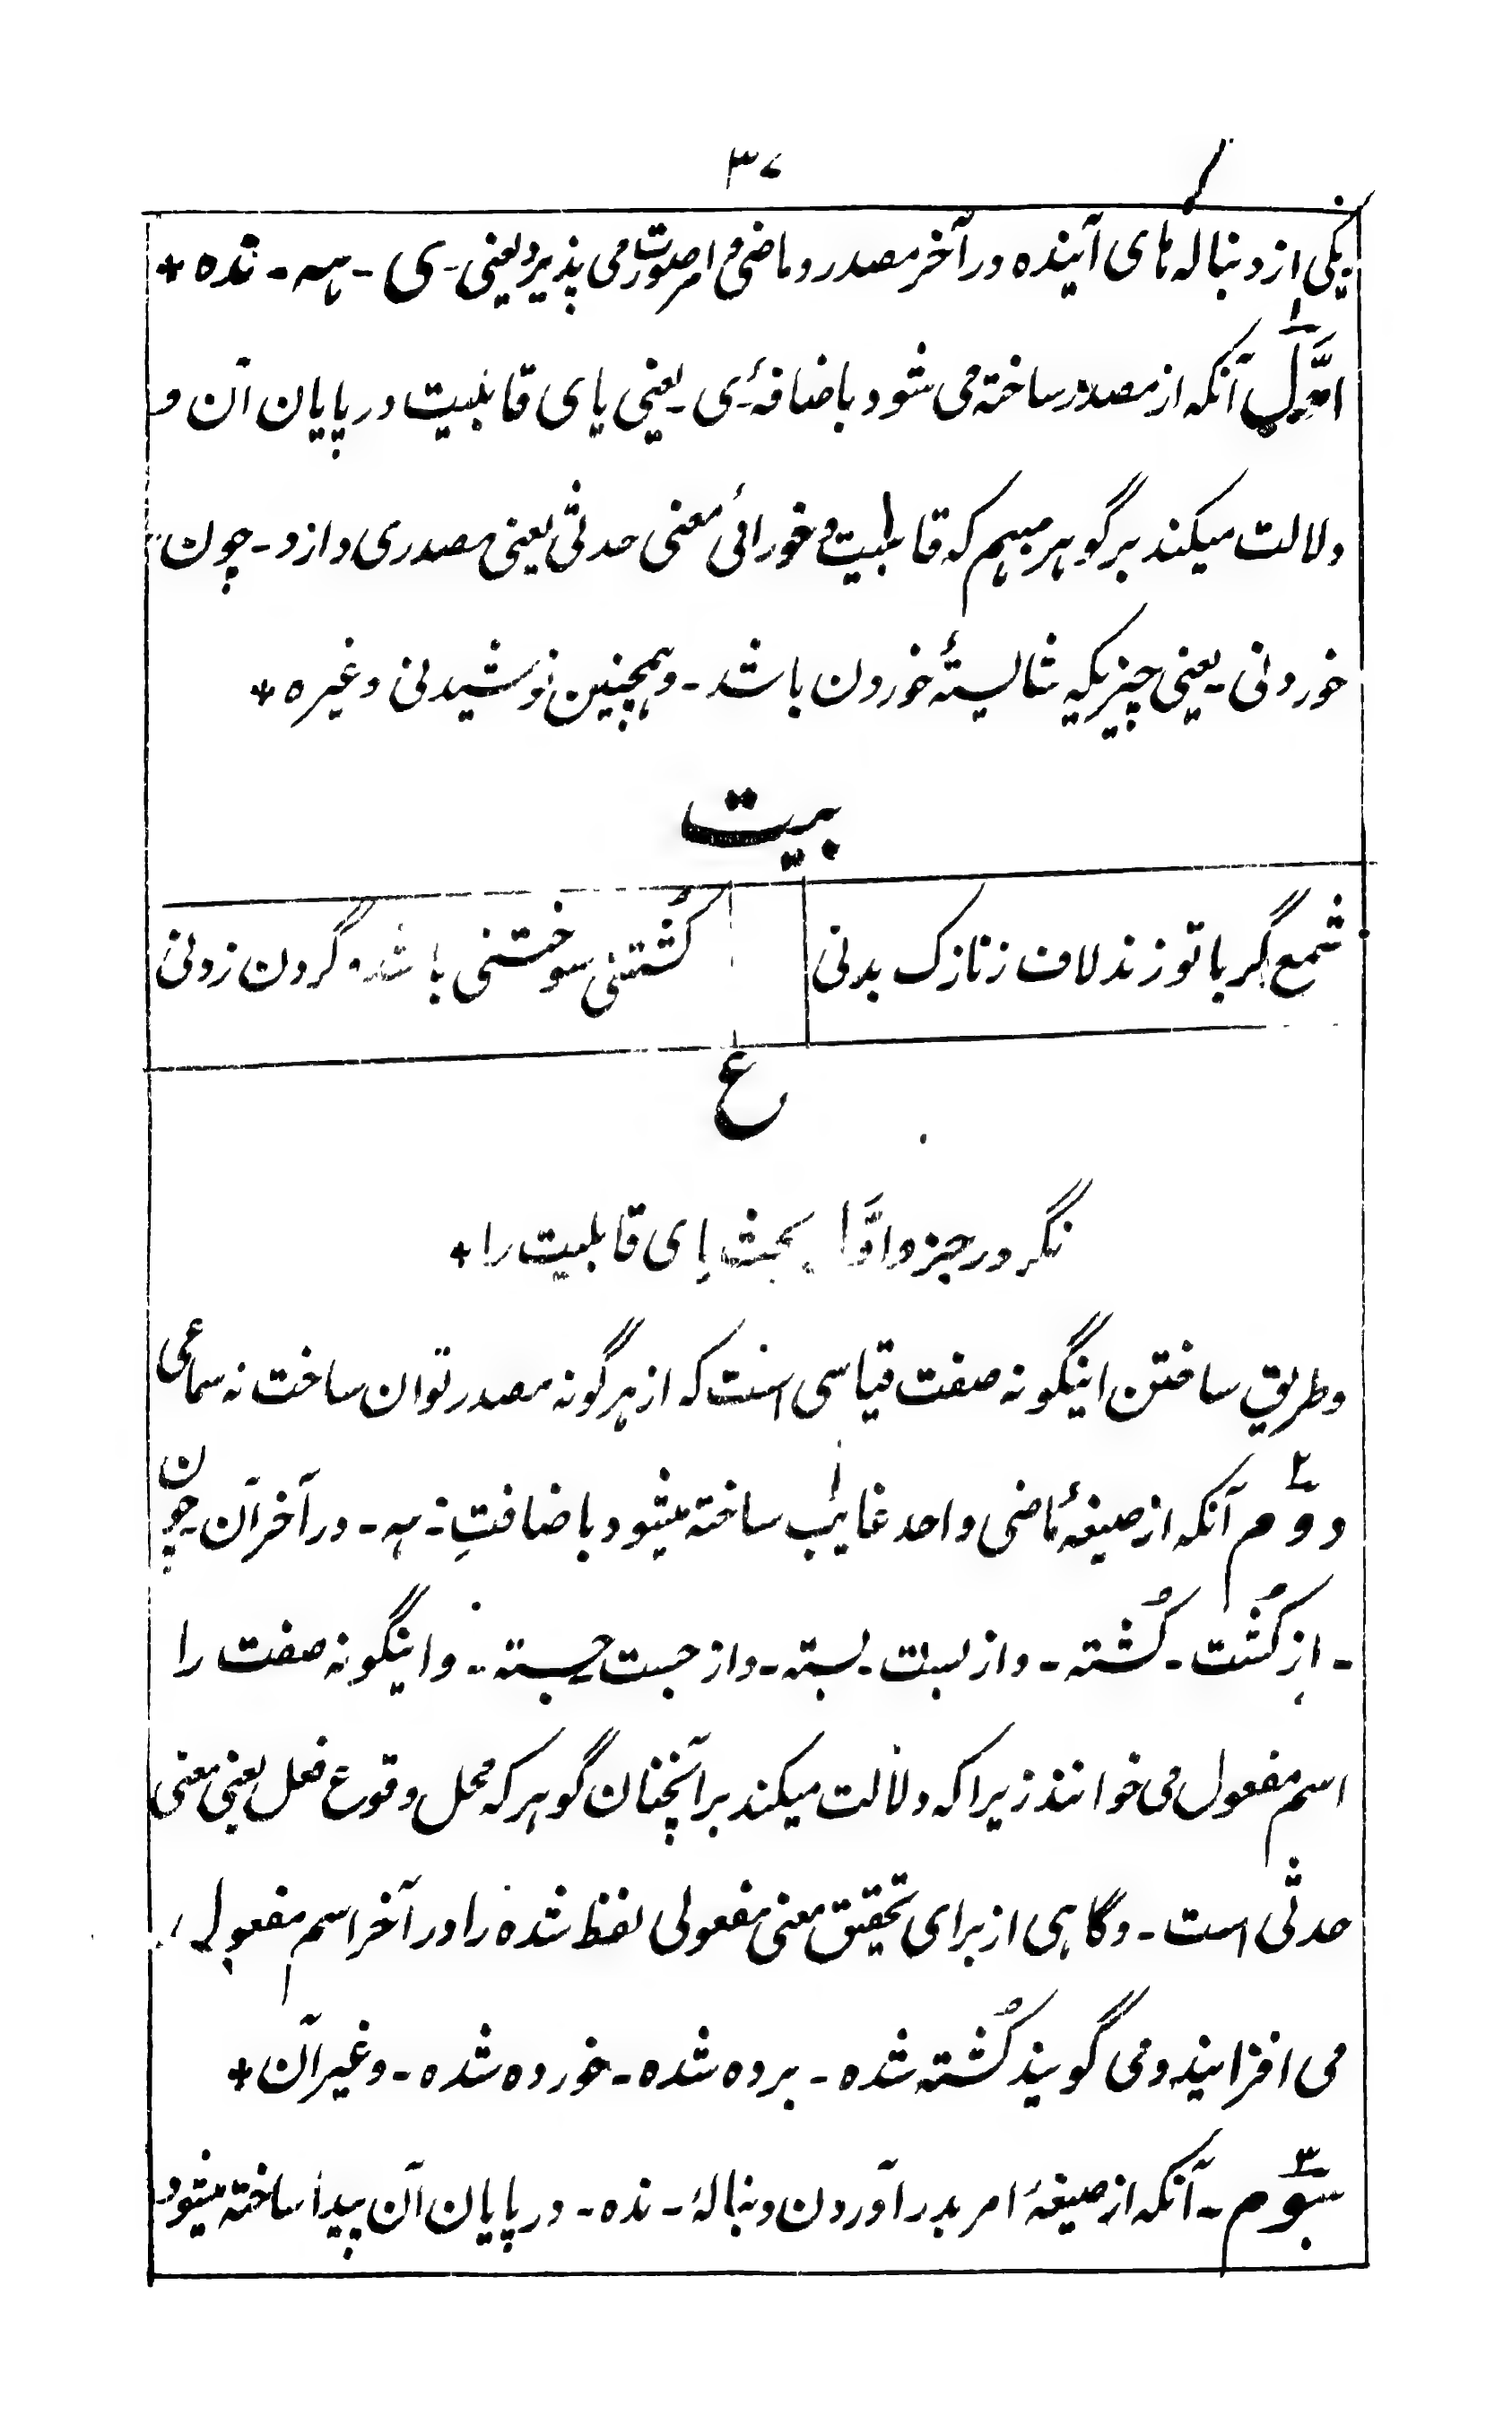 ۳۷
یکی از دنباله های آینده در آخر مصدر و ماضی و امر صورت می پذیرد یعنی - ی - ہہ - نده +
اوّل آنکه از مصدر ساخته می شود باضافۀ - ی - یعنی یای قابلیت در پایان آن و
دلالت میکند بر گوهر مبهم که قابلیت و خورائی معنی حدثی یعنی مصدری دارد - چون
خوردنی - یعنی چیزیکه شایستۀ خوردن باشد - و همچنین نوشیدنی وغیره +
بیت
شمع گر با تو زند لاف ز نازک بدنی
کُشتنی سوختنی باشد و گردن زدنی
ع
نگر در جزو اوّل بحث یای قابلیت را +
و طریق ساختن اینگونه صفت قیاسی است که از هر گونه مصدر توان ساخت نه سماعی
۲
دوّم آنکه از صیغۀ ماضی واحد غایب ساخته میشود باضافتِ - ہہ - در آخر آن - چون
- از کُشت - کُشته - و از بست - بسته - و از جست جسته - و اینگونه صفت را
اسم مفعول می خوانند زیرا که دلالت میکند بر آنچنان گوهر که محل وقوع فعل یعنی معنی
حدثی است - و گاهی از برای تحقیق معنی مفعولی لفظ شده را در آخر اسم مفعول
می افزایند و می گویند کُشته شده - برده شده - خورده شده - و غیر آن +
۳
سوّم - آنکه از صیغۀ امر بدر آوردن دنبالۀ - نده - در پایان آن پیدا ساخته میشود